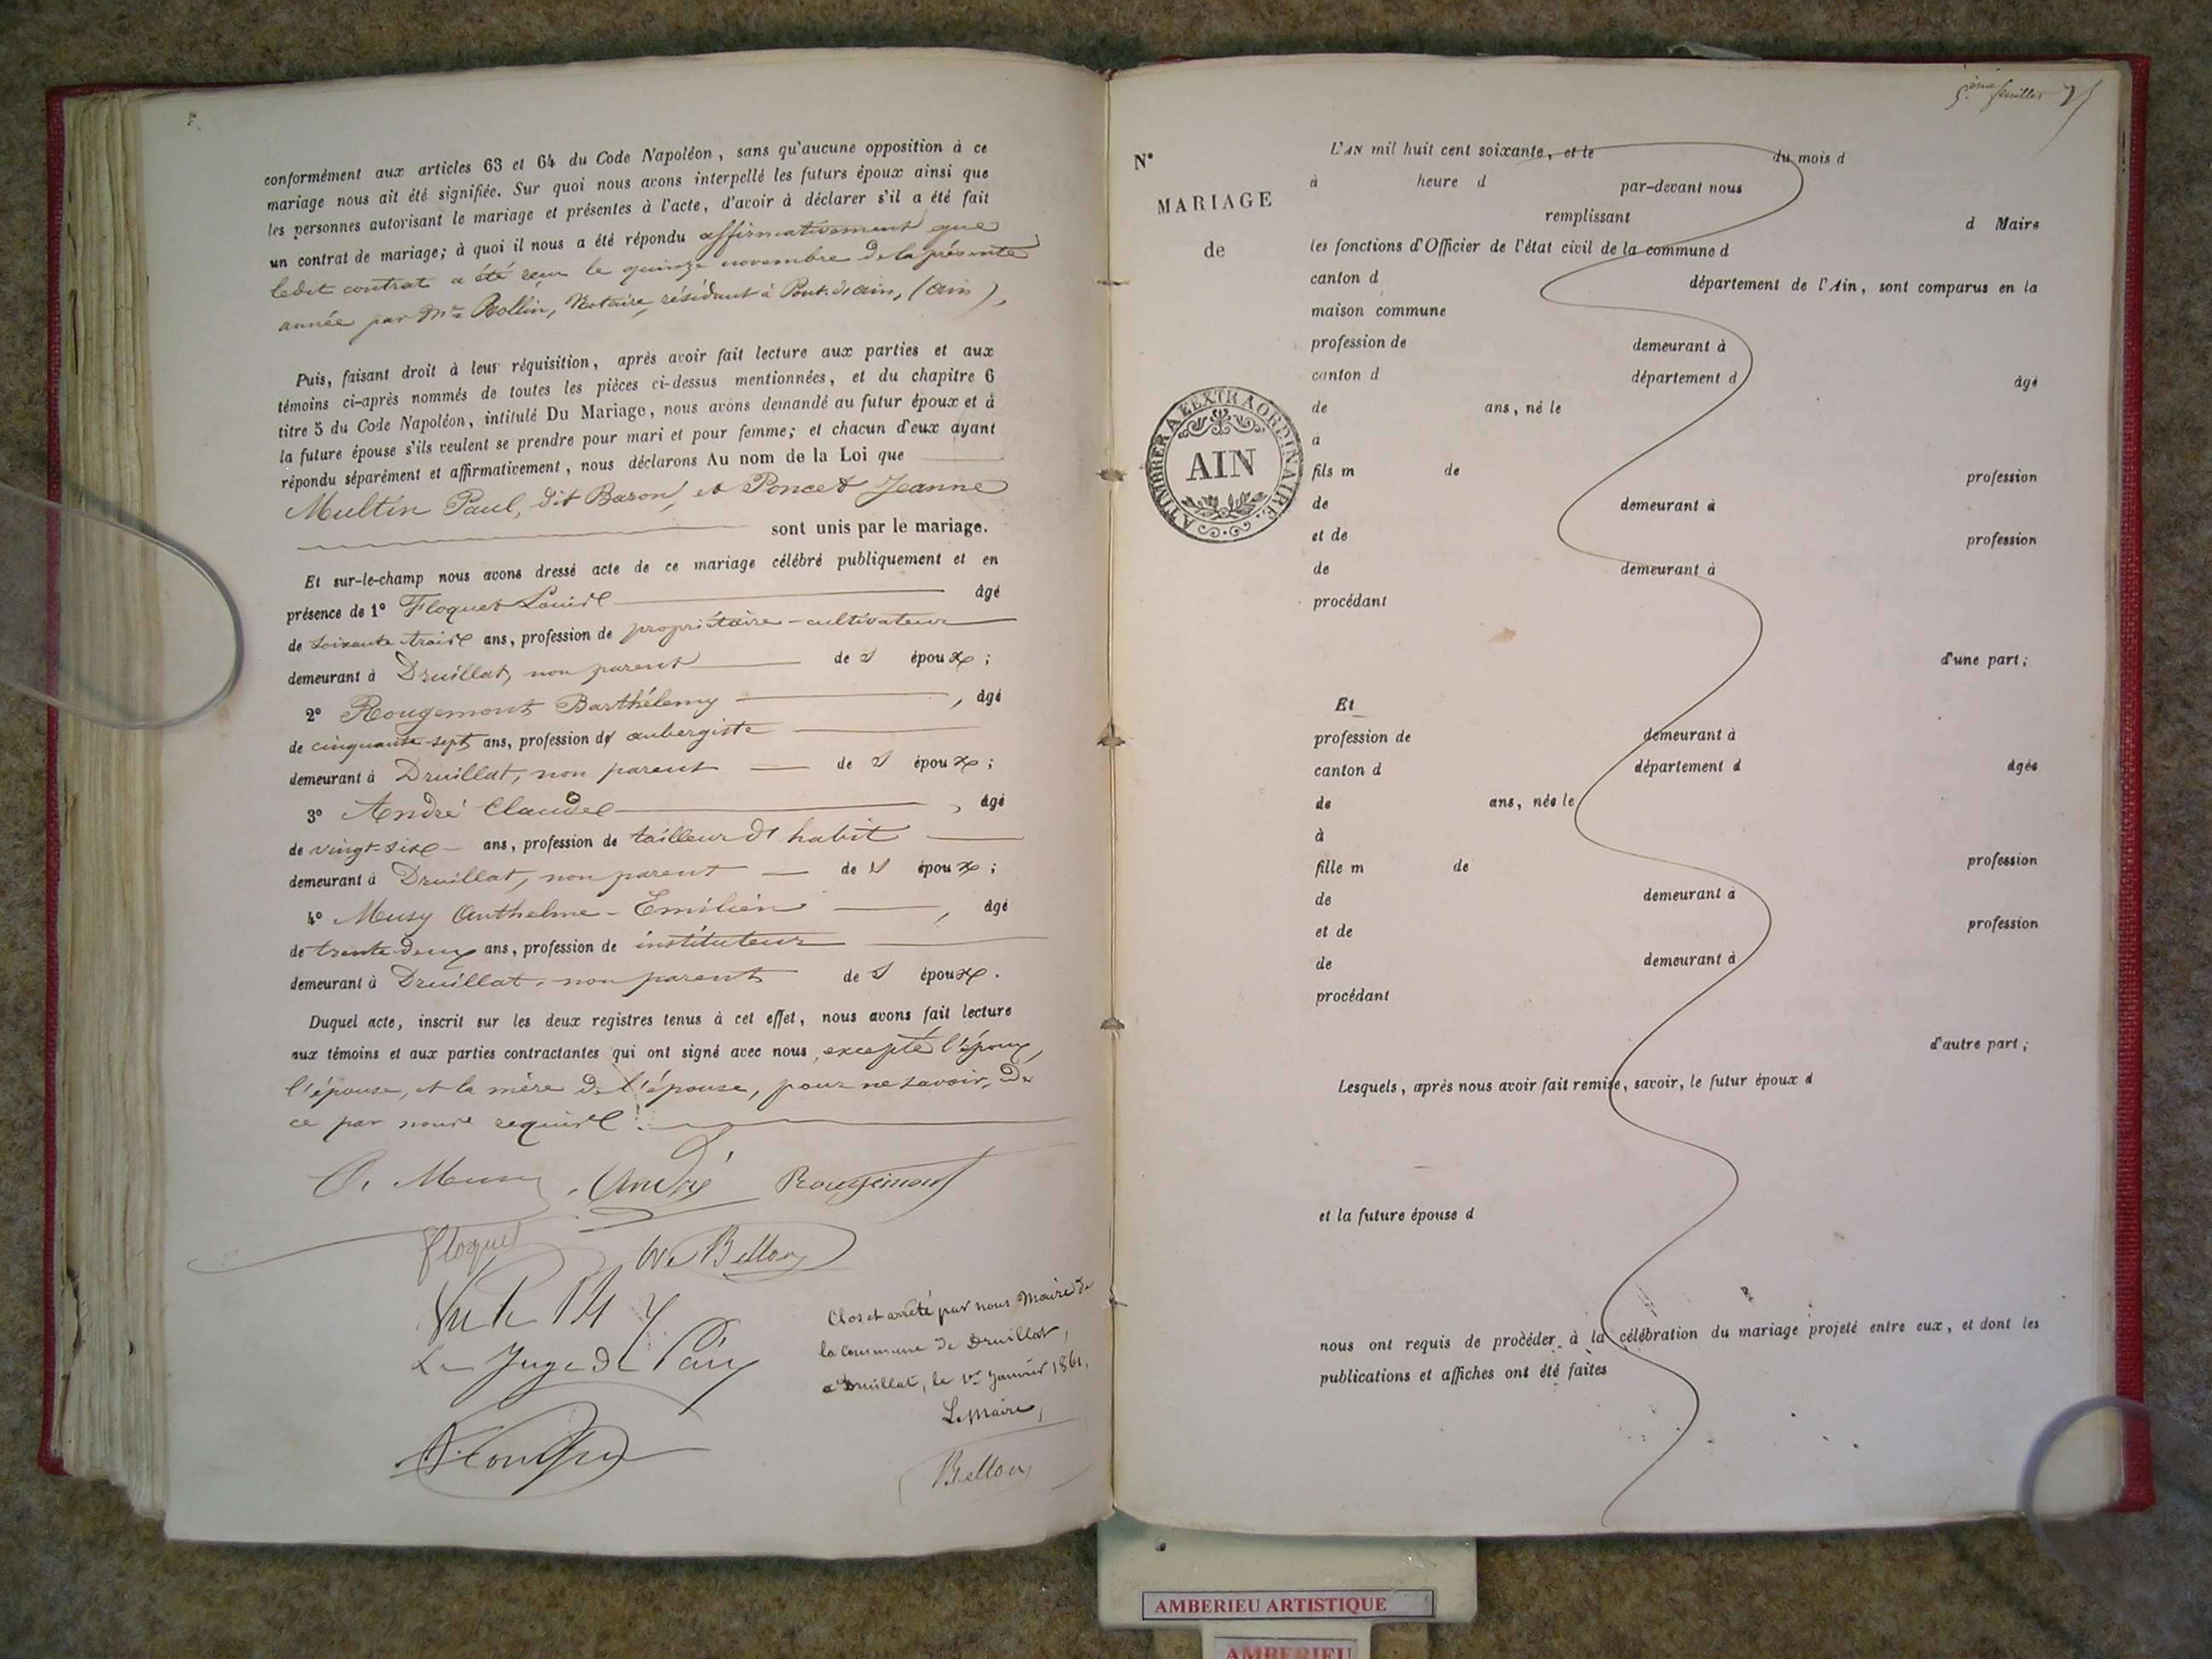 conformément aux articles 63 et 64 du Code Napoléon, sans qu'aucune opposition à ce
mariage nous ait été signifiée. Sur quoi nous avons interpellé les futurs époux ainsi que
les personnes autorisant le mariage et présentes à l'acte, d'avoir à déclarer s'il a été fait
un contrat de mariage; à quoi il nous a été répondu affirmativement que
ledit contrat a été reçu le quinze novembre de la présente
année par Me Rollin, Notaire, résidant à Pont-d'ain, (ain),
Puis, faisant droit à leur réquisition, après avoir fait lecture aux parties et aux
témoins ci-après nommés de toutes les pièces ci-dessus mentionnées, et du chapitre 6
titre 5 du Code Napoléon, intitulé Du Mariage, nous avons demandé au futur époux et à
la future épouse s'ils veulent se prendre pour mari et pour femme; et chacun d'eux ayant
répondu séparément et affirmativement, nous déclarons Au nom de la Loi que
Multin Paul, dit Baron, et Poncet Jeanne
sont unis par le mariage.
Et sur-le-champ nous avons dressé acte de ce mariage célébré publiquement et en
présence de 1° Floquet Louis âgé
de soixante trois ans, profession de propriétaire-cultivateur
demeurant à Druillat, non parent des époux;
2° Rougemont Barthélemy, âgé
de cinquante-sept ans, profession d' aubergiste
demeurant à Druillat, non parent des époux;
3° André Claude, âgé
de vingt-six ans, profession de tailleur d'habit
demeurant à Druillat, non parent des époux;
4° Musy Anthelme-Emilien, âgé
de trente-deux ans, profession de instituteur
demeurant à Druillat, non parent des époux.
Duquel acte, inscrit sur les deux registres tenus à cet effet, nous avons fait lecture
aux témoins et aux parties contractantes qui ont signé avec nous, excepté l'époux,
l'épouse, et la mère de l'épouse, pour ne savoir, de
ce par nous requis.
A. Musy André Rougemont
Floquet Bellon
Le Juge de Paix
Clos et arrêté par nous Maire de
la commune de Druillat,
a Druillat, le 1er Janvier 1861,
Le Maire,
Bellon
5.ème feuillet
N°
MARIAGE
de
A TIMBRER A L'EXTRAORDINAIRE.
AIN
L'AN mil huit cent soixante, et le du mois d
à heure d par-devant nous
remplissant d Maire
les fonctions d'Officier de l'état civil de la commune d
canton d département de l'Ain, sont comparus en la
maison commune
profession de demeurant à
canton d département d âgé
de ans, né le
à
fils m de profession
de demeurant à
et de profession
de demeurant à
procédant
d'une part;
Et
profession de demeurant à
canton d département d âgée
de ans, née le
à
fille m de profession
de demeurant à
et de profession
de demeurant à
procédant
d'autre part;
Lesquels, après nous avoir fait remise, savoir, le futur époux d
et la future épouse d
nous ont requis de procéder à la célébration du mariage projeté entre eux, et dont les
publications et affiches ont été faites
AMBERIEU ARTISTIQUE
AMBERIEU